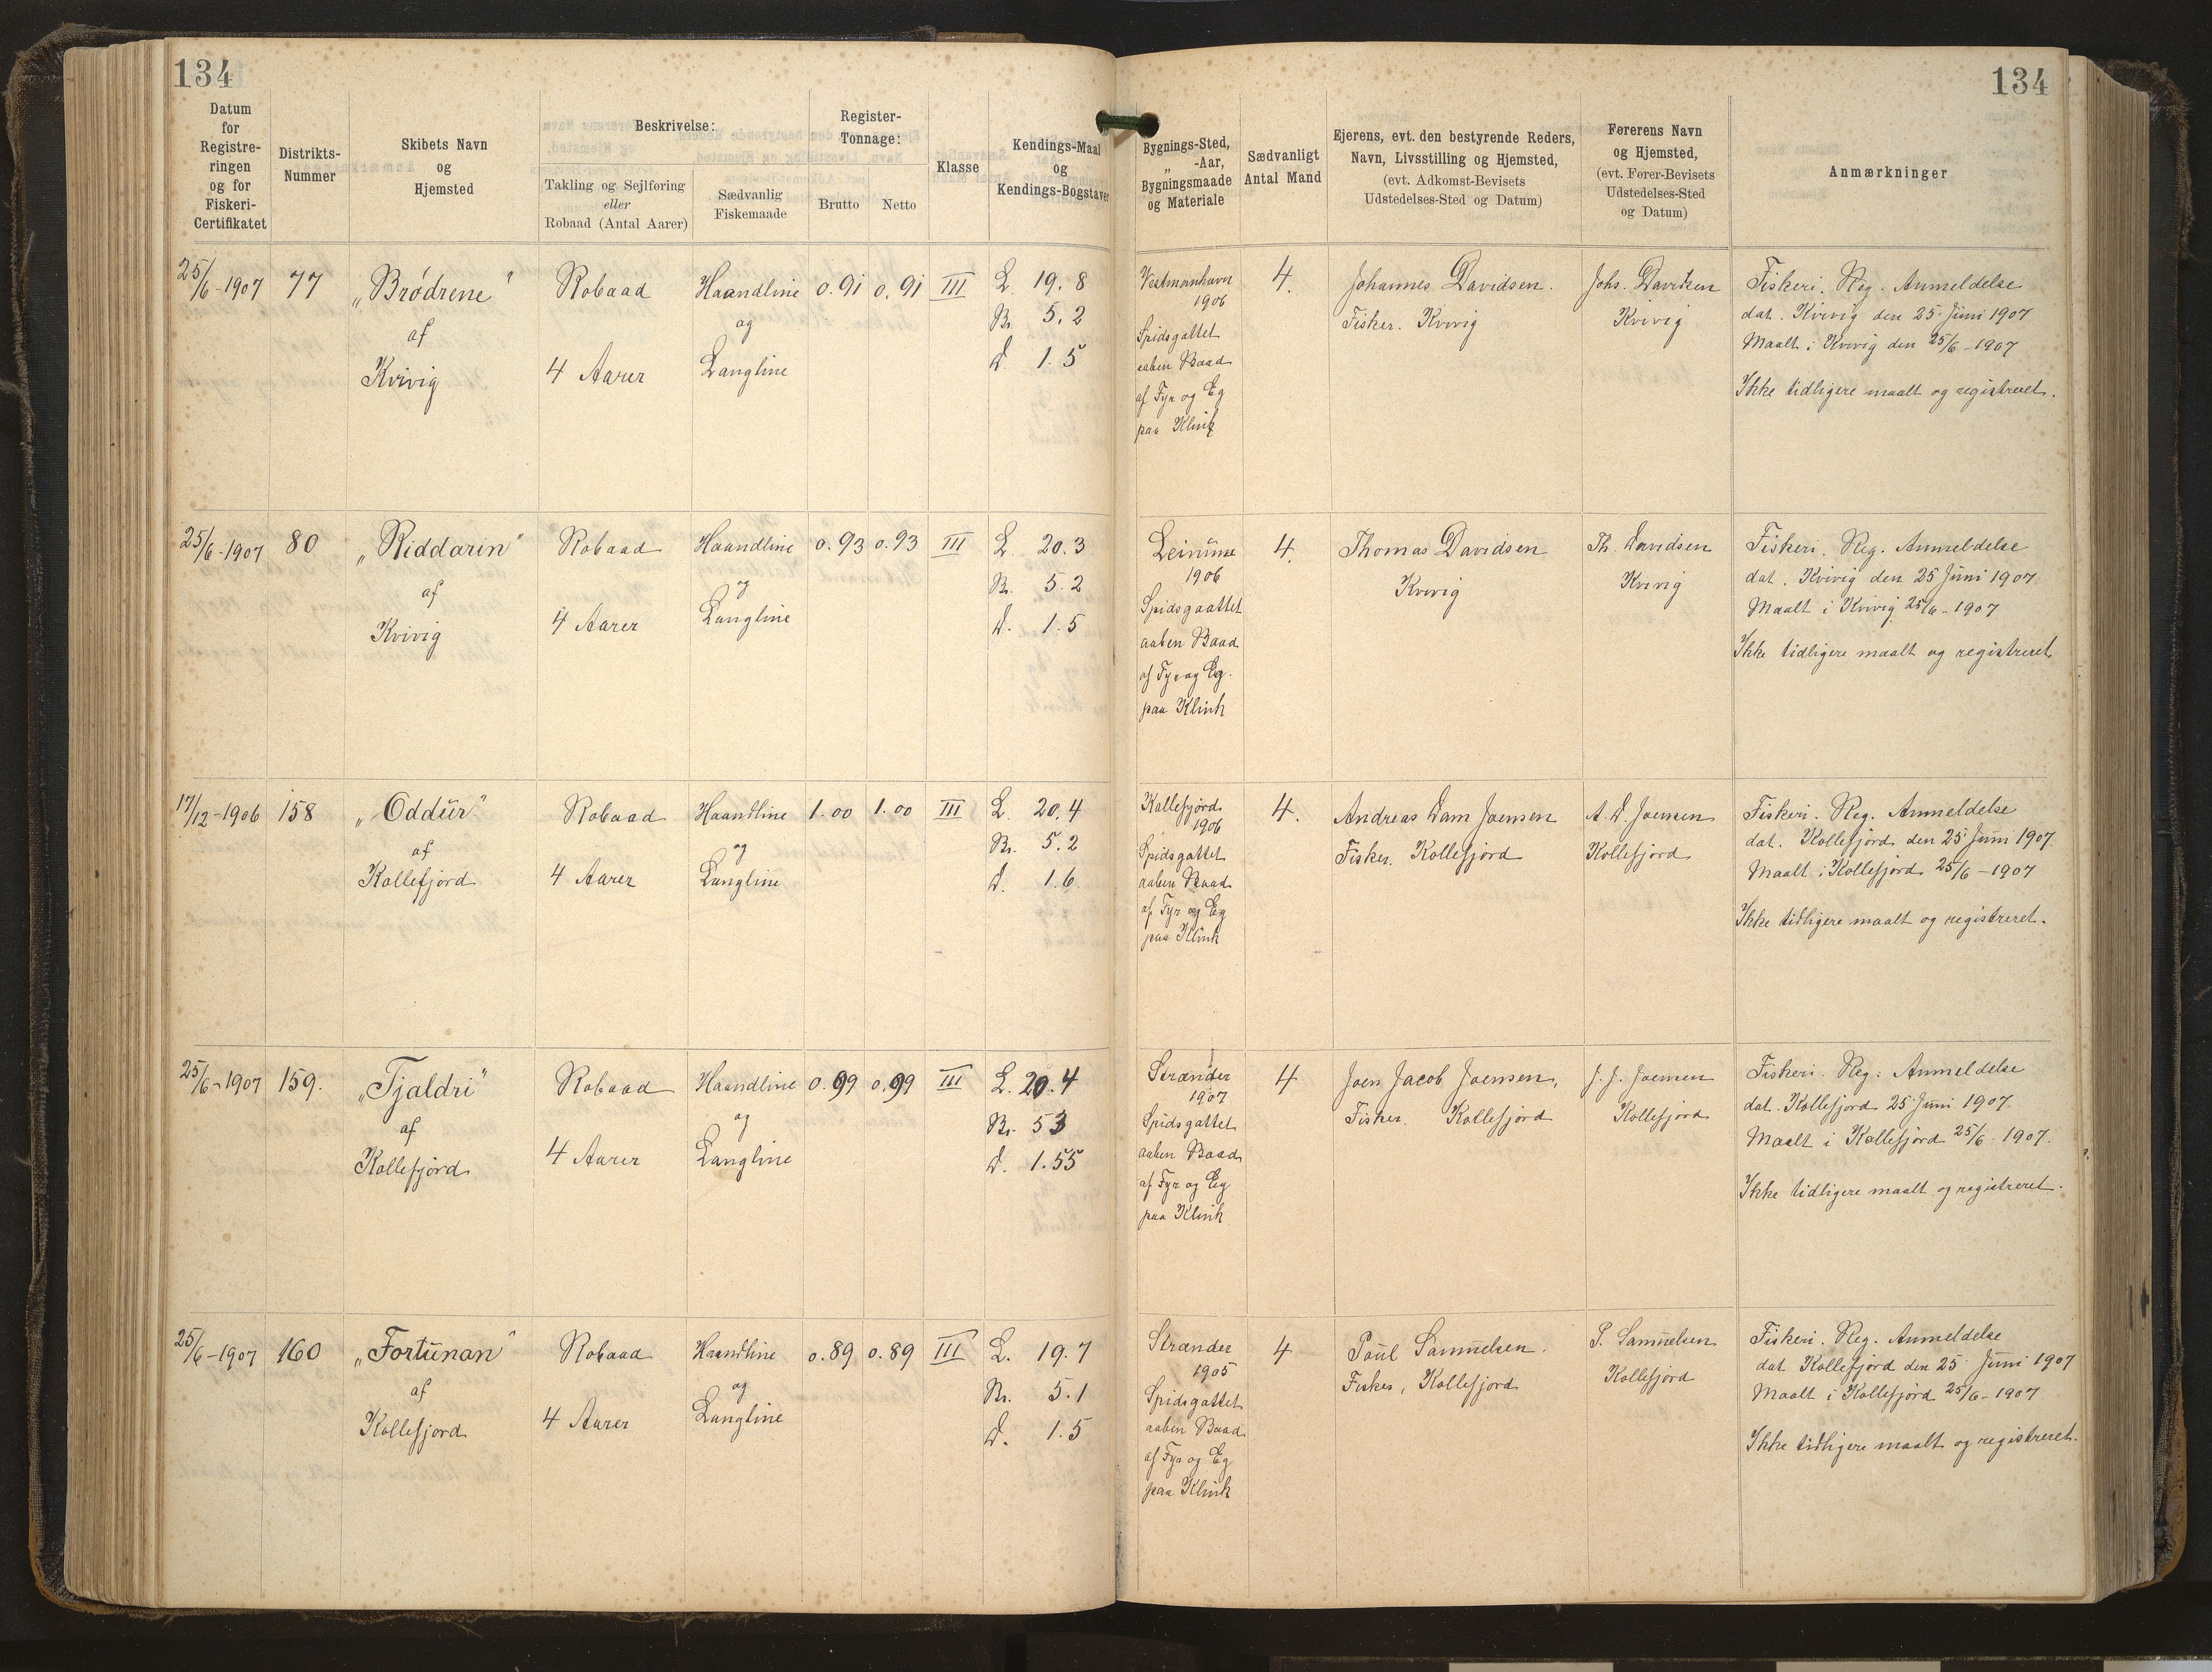 134
134
Datum
for
Registre-
ringen
og for
Fiskeri-
Certifikatet
Distrikts-
Nummer
Skibets Navn
og
Hjemsted
Beskrivelse:
Takling og Sejlføring
eller
Robaad (Antal Aarer)
Sædvanlig
Fiskemaade
Register-
Tonnage:
Brutto
Netto
Klasse
Kendings-Maal
og
Kendings-Bogstaver
Bygnings-Sted,
„ -Aar,
Bygningsmaade
og Materiale
Sædvanligt
Antal Mand
Ejerens, evt. den bestyrende Reders,
Navn, Livsstilling og Hjemsted,
(evt. Adkomst-Bevisets
Udstedelses-Sted og Datum)
Førerens Navn
og Hjemsted,
(evt. Fører-Bevisets
Udstedelses-Sted
og Datum)
Anmærkninger
25/6-1907
77
„Brødrene"
af
Kvivig
Robaad
4 Aarer
Haandline
og
Langline
0.91
0.91
III
L. 19.8
Br. 5.2
D. 1.5
Vestmanhavn
1906
Spidsgattet
aaben Baad
af Fyr og Eg
paa Klink
4.
Johannes Davidsen.
Fisker. Kvivig
Johs. Davidsen
Kvivig
Fiskeri. Reg. Anmeldelse
dat. Kvivig den 25. Juni 1907
Maalt i Kvivig den 25/6-1907
Ikke tidligere maalt og registreret.
25/6-1907
80
„Riddarin"
af
Kvivig
Robaad
4 Aarer
Haandline
og
Langline
0.93
0.93
III
L. 20.3
Br. 5.2
D. 1.5
Leinum
1906
Spidsgaattet
aaben Baad
af Fyr og Eg.
paa Klink
4.
Thomas Davidsen
Kvivig
Th. Davidsen
Kvivig
Fiskeri. Reg. Anmeldelse
dat. Kvivig den 25 Juni 1907.
Maalt i Kvivig 25/6-1907
Ikke tidligere maalt og registreret
17/12-1906
158
„Oddur"
af
Kollefjord
Robaad
4 Aarer
Haandline
og
Langline
1.00
1.00
III
L. 20.4
Br. 5.2
D. 1.6
Kollefjord
1906
Spidsgattet
aaben Baad
af Fyr og Eg
paa Klink
4.
Andreas Dam Joensen
Fisker. Kollefjord
A. D. Joensen
Kollefjord
Fiskeri. Reg. Anmeldelse
dat. Kollefjord den 25 Juni 1907.
Maalt i Kollefjord 25/6-1907
Ikke tidligere maalt og registreret.
25/6-1907
159.
„Tjaldri"
af
Kollefjord
Robaad
4 Aarer
Haandline
og
Langline
0.99
0.99
III
L. 20.4
Br. 53
D. 1.55
Strænder
1907
Spidsgattet
aaben Baad
af Fyr og Eg
paa Klink
4
Joen Jacob Joensen,
Fisker. Kollefjord
J. J. Joensen
Kollefjord
Fiskeri. Reg. Anmeldelse
dat. Kollefjord 25 Juni 1907.
Maalt i Kollefjord 25/6 1907.
Ikke tidligere maalt og registreret.
25/6-1907
160
„Fortunan"
af
Kollefjord
Robaad
4 Aarer
Haandline
og
Langline
0.89
0.89
III
L. 19.7
Br. 5.1
D. 1.5
Strænder
1905
Spidsgattet
aaben Baad
af Fyr og Eg
paa Klink
4
Poul Samuelsen.
Fisker, Kollefjord
P. Samuelsen
Kollefjord
Fiskeri. Reg. Anmeldelse
dat. Kollefjord den 25 Juni 1907
Maalt i Kollefjord 25/6-1907
Ikke tidligere maalt og registreret.